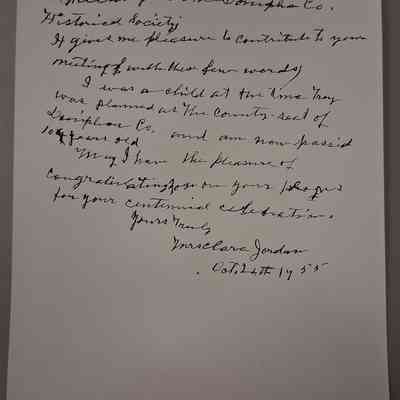 Doniphan Co.
Historical Society
It gives me pleasure to contribute to your
meeting with these few words
I was a child at the time Troy
was planned as the County-seat of
Doniphan Co. and am now passed
104 years old
May I have the pleasure of
congratulating you on your
for your centennial celebration.
Yours Truly
Mrs Clara Jordan
Oct. 24th 1955